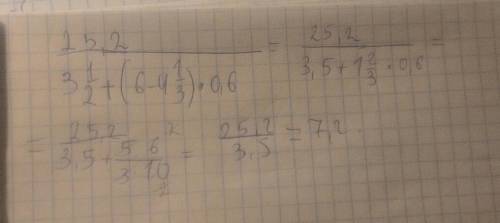 25,2 / (3 1/2 + (6 - 4 1/3) · 0,6) = 25,2 / (3,5 + 1 2/3 · 0,6) =
= 25,2 / (3,5 + 5/3 6/10) = 25,2 / 3,5 = 7,2.